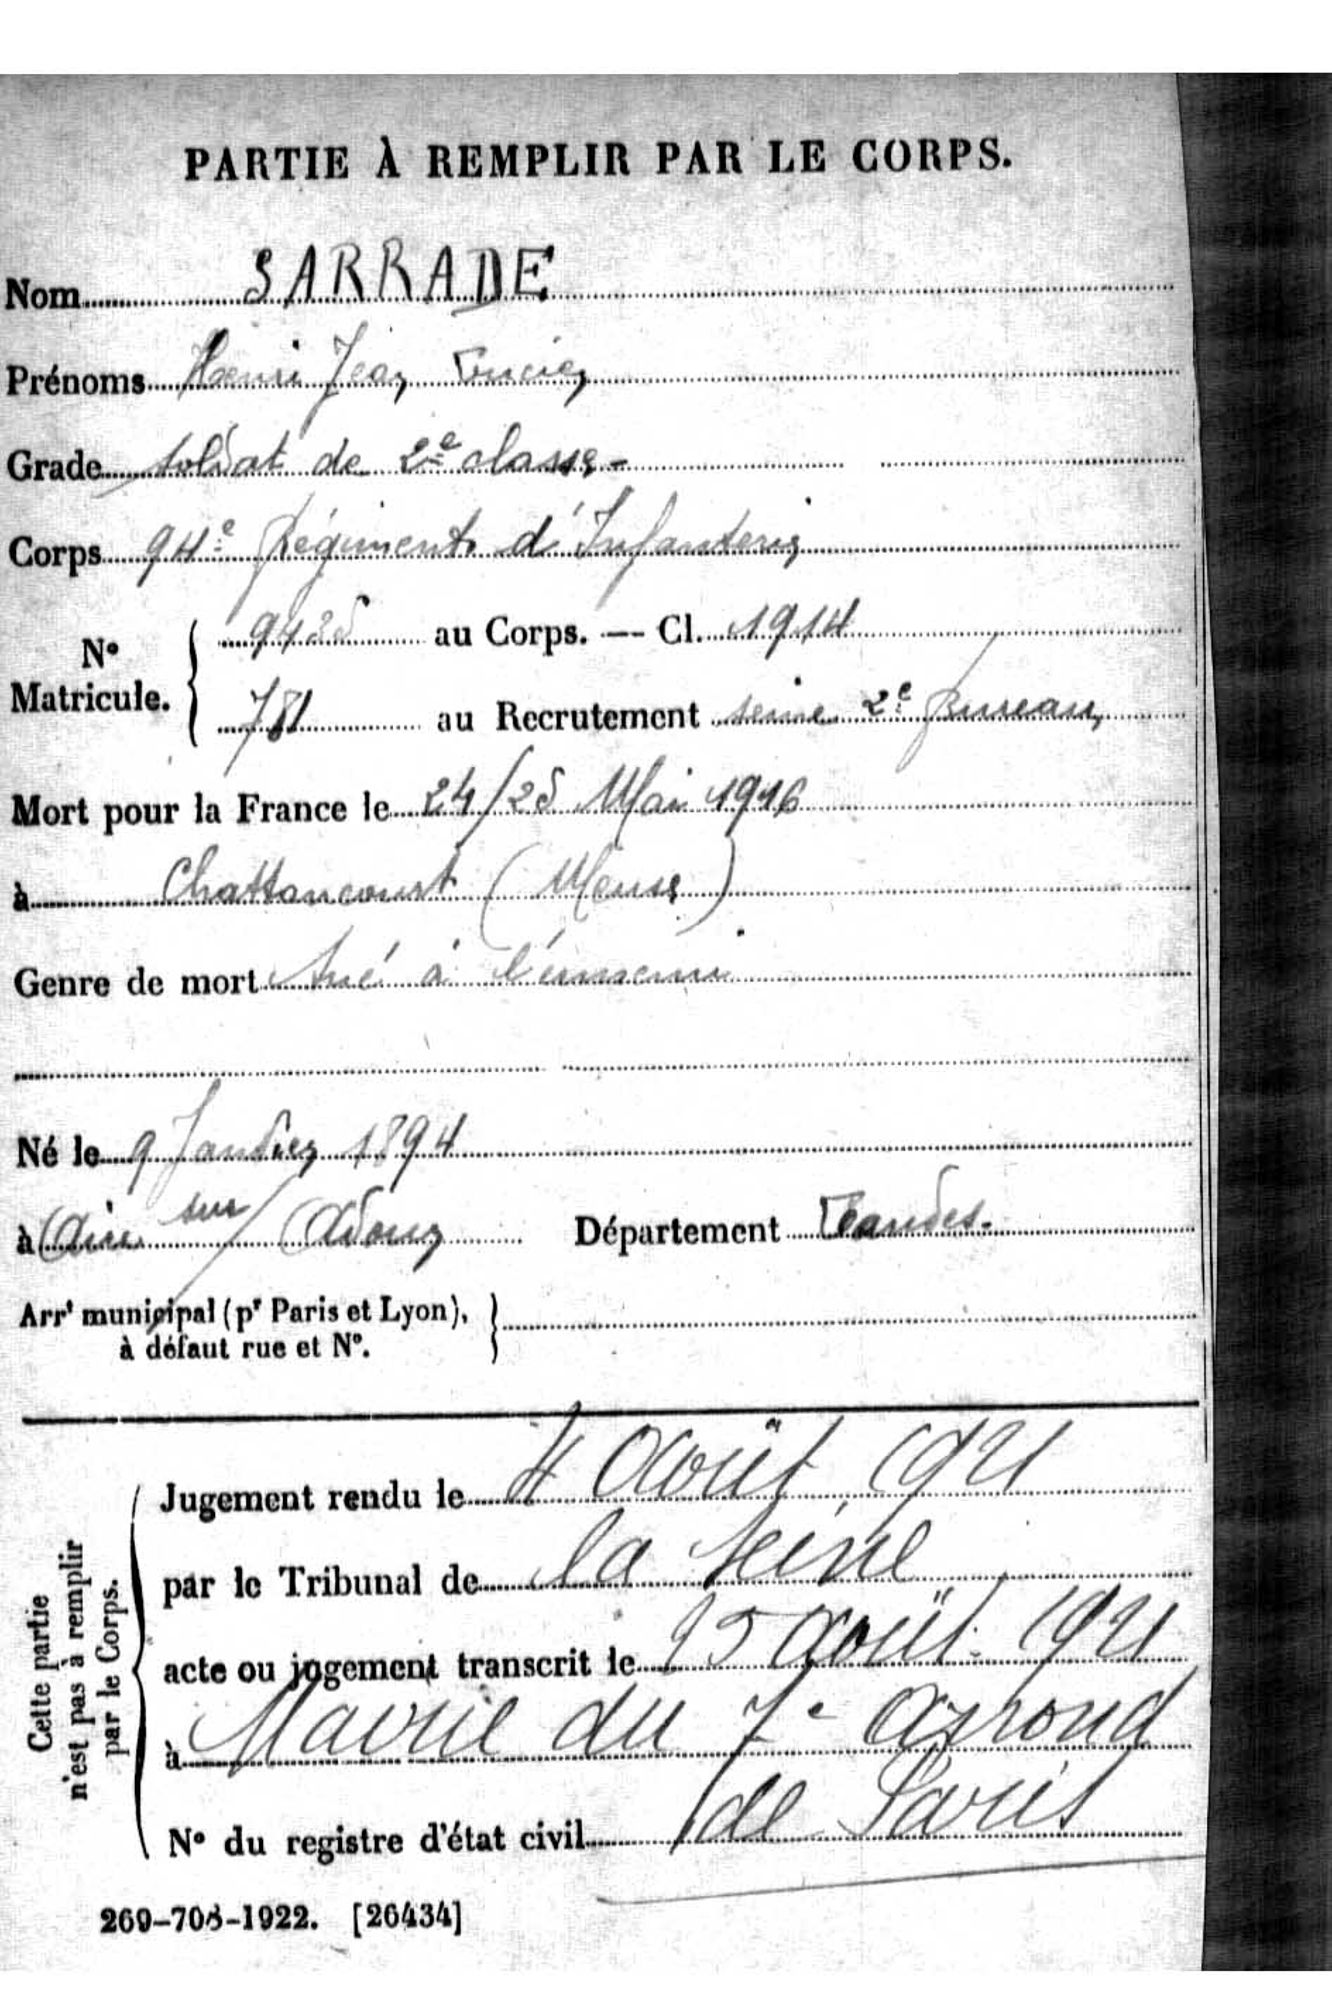 PARTIE À REMPLIR PAR LE CORPS.
Nom SARRADE
Prénoms Henri Jean Lucien
Grade soldat de 2e classe -
Corps 94e Régiment d'Infanterie
N° Matricule. 9425 au Corps. — Cl. 1914
781 au Recrutement seine 2e Bureau
Mort pour la France le 24/25 Mai 1916
à Chattancourt (Meuse)
Genre de mort tué à l'ennemi
Né le 9 Janvier 1894
à Aire sur / Adour Département Landes.
Arrt municipal (pr Paris et Lyon),
à défaut rue et N°.
Cette partie
n'est pas à remplir
par le Corps.
Jugement rendu le 4 Août 1921
par le Tribunal de la Seine
acte ou jugement transcrit le 25 août 1921
à Mairie du 7e arrond
N° du registre d'état civil de Paris
269-708-1922. [26434]